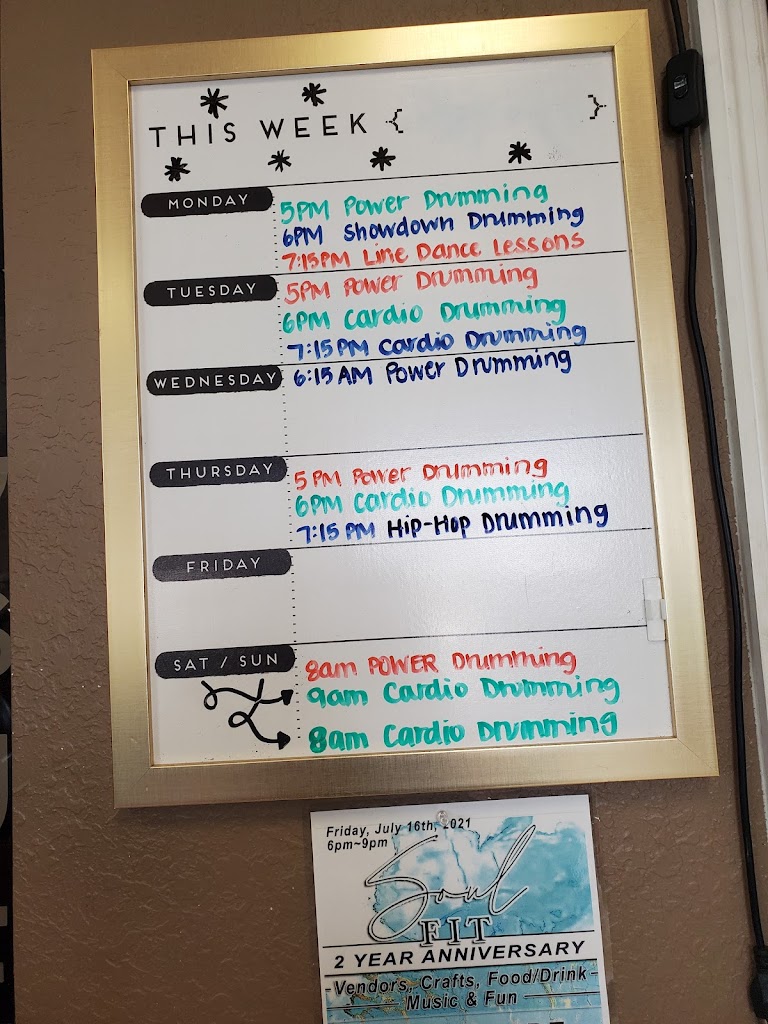 THIS WEEK { }
MONDAY
5PM Power Drumming
6PM Showdown Drumming
7:15PM Line Dance Lessons
TUESDAY
5PM Power Drumming
6PM Cardio Drumming
7:15PM Cardio Drumming
WEDNESDAY
6:15AM Power Drumming
THURSDAY
5PM Power Drumming
6PM Cardio Drumming
7:15PM HIP-HOP Drumming
FRIDAY
SAT / SUN
8am POWER Drumming
9am Cardio Drumming
8am Cardio Drumming
Friday, July 16th, 2021
6pm~9pm
Soul
FIT
2 YEAR ANNIVERSARY
Vendors, Crafts, Food/Drink
Music & Fun